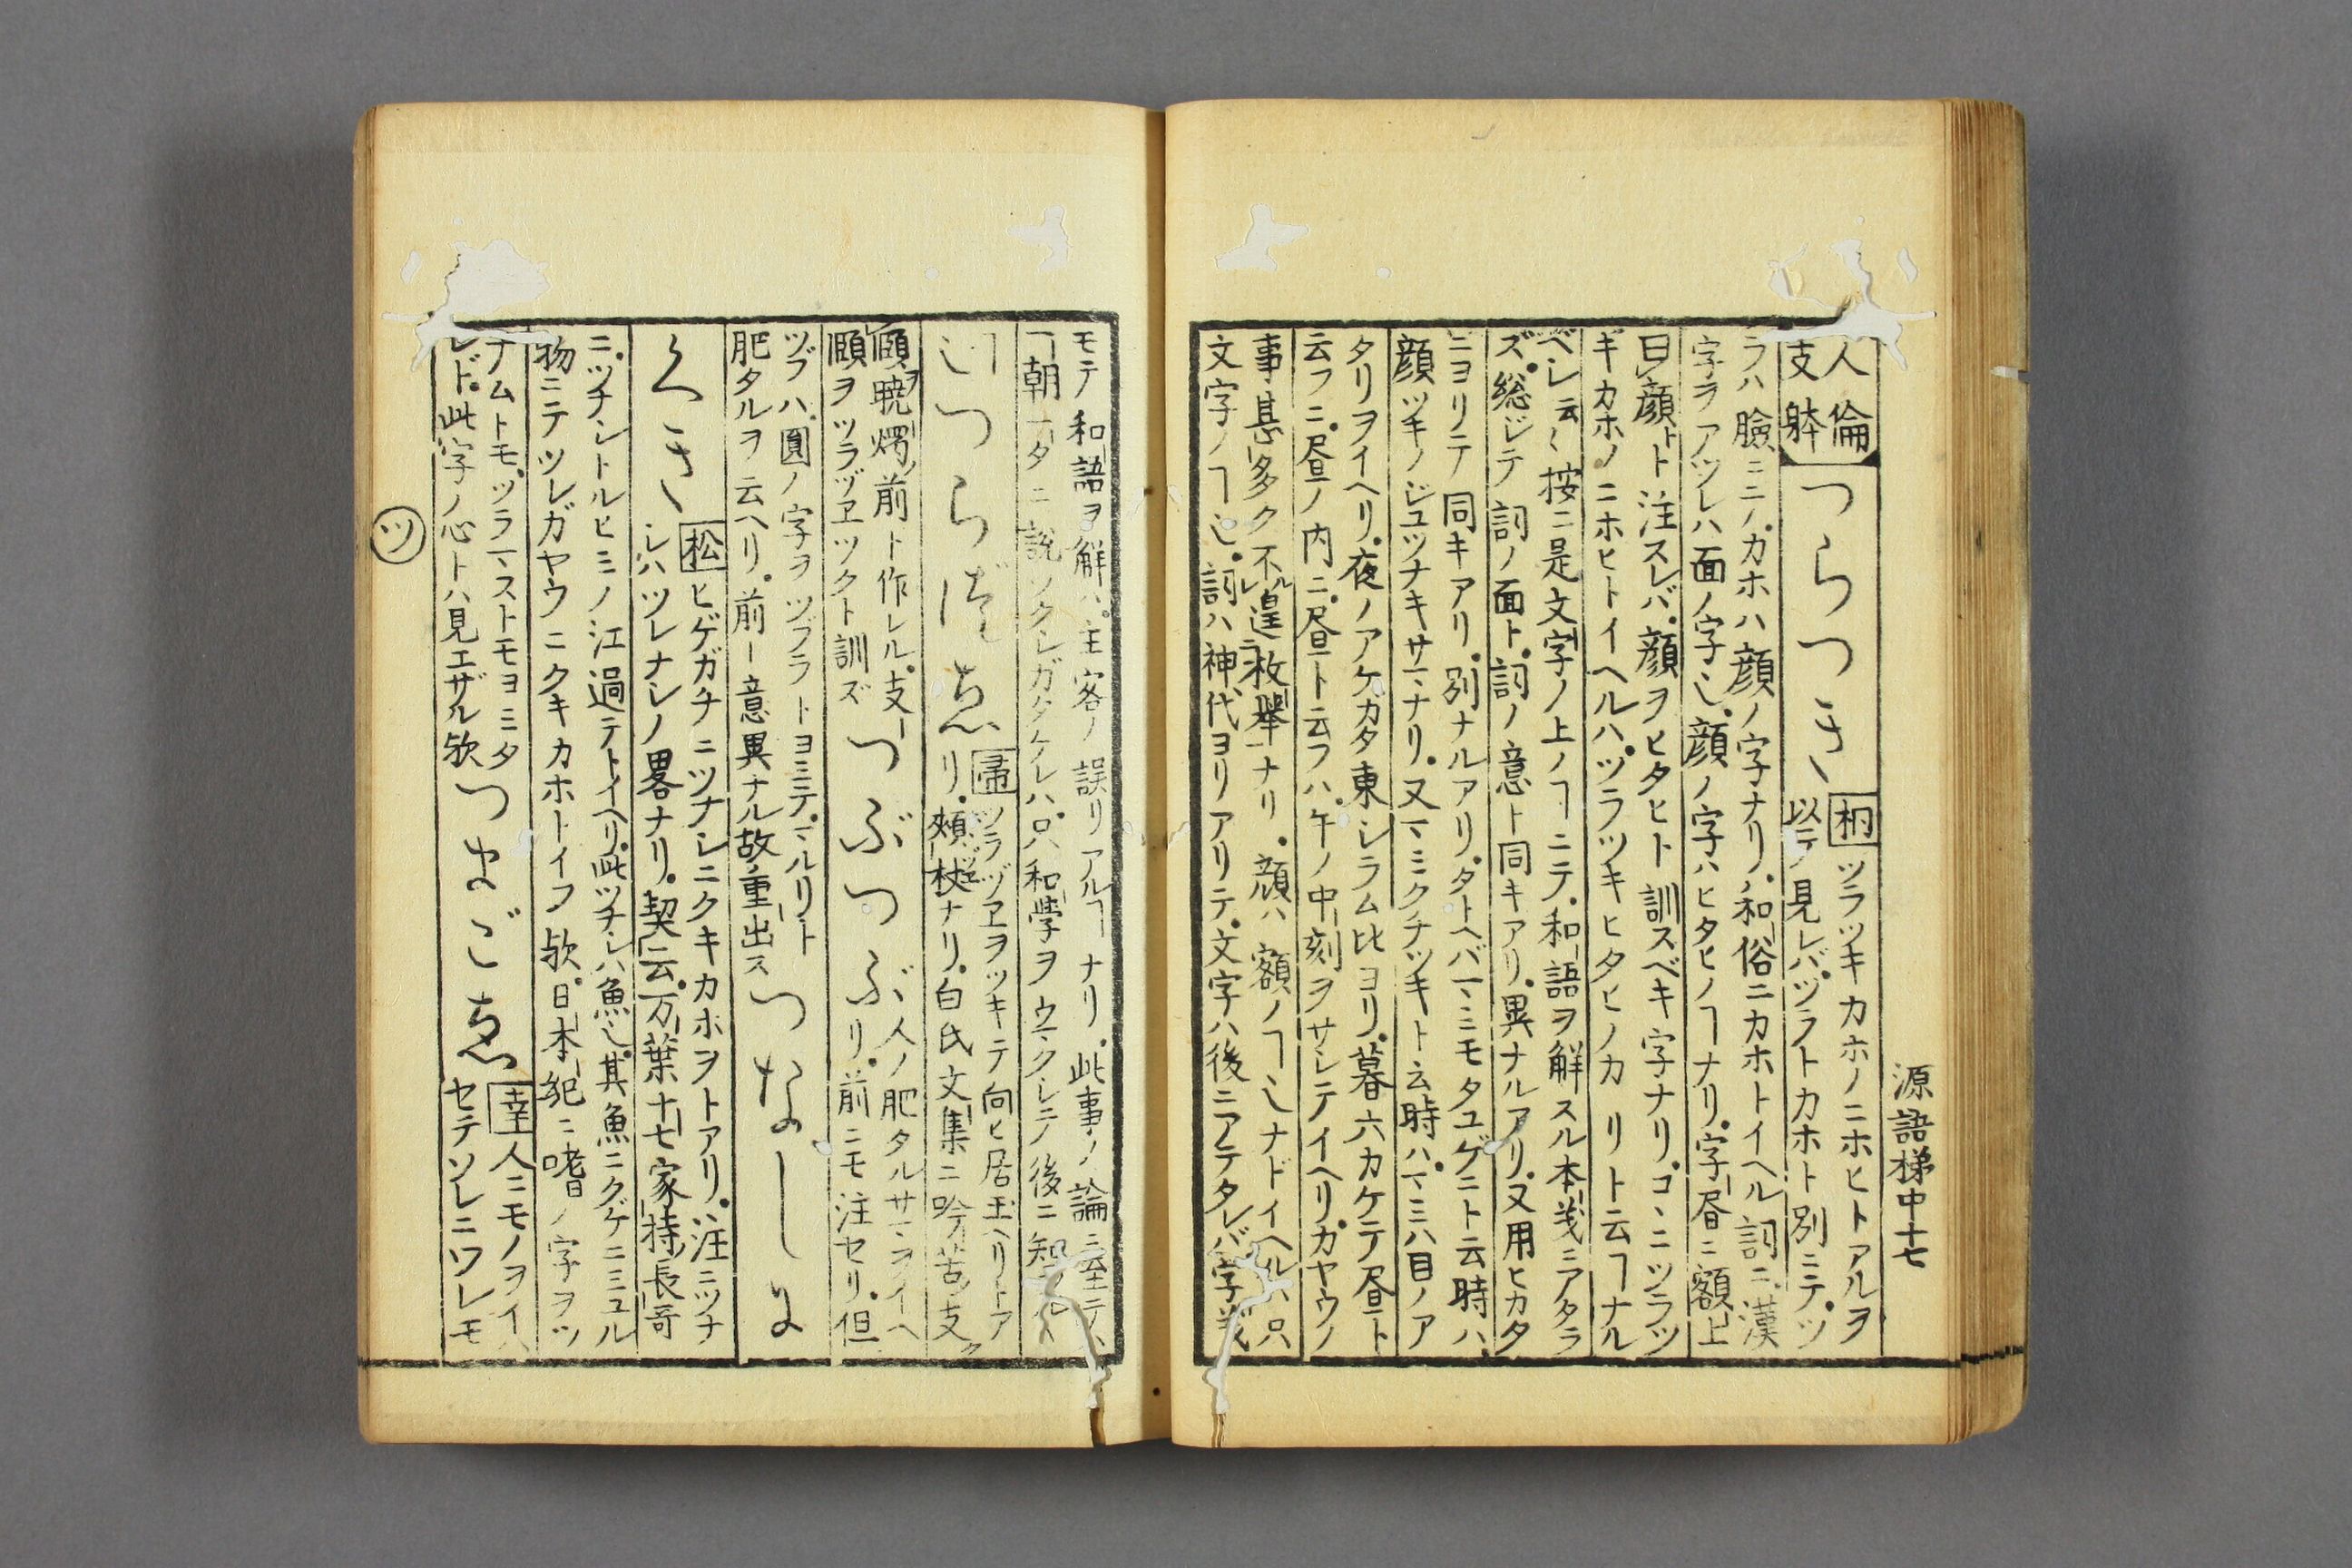 源語梯中十七
人倫
支躰
つらつき
柏
ツラツキカホノニホヒトアルヲ
以テ見レバ、ツラトカホト別ニテ、ツ
ラハ臉ニ〆、カホハ顔ノ字ナリ、和俗ニカホトイヘル詞ニ、漢
字ヲアツレハ面ノ字也、顔ノ字ハヒタヒノヿナリ、字昬ニ額上
曰顔ト注スレバ、顔ヲヒタヒト訓スベキ字ナリ、コヽニツラツ
キカホノニホヒトイヘルハ、ツラツキヒタヒノカヽリト云ヿナル
ベシ云〻按ニ是文字ノ上ノヿニテ、和語ヲ解スル本義ニアタラ
ズ、総ジテ詞ノ面ト、詞ノ意ト同キアリ、異ナルアリ、又用ヒカタ
ニヨリテ同キアリ、別ナルアリ、タトヘバマミモタユゲニト云時ハ、
顔ツキノジユツナキサマナリ、又マミクチツキト云時ハ、マミハ目ノア
タリヲイヘリ、夜ノアケガタ東シラム比ヨリ、暮六カケテ昼ト
云フニ、昼ノ内ニ、昼ト云フハ、午ノ中刻ヲサシテイヘリ、カヤウノ
事甚多ク不遑枚挙ナリ、顔ハ額ノヿ也ナドイヘルハ、只
文字ノヿ也、詞ハ神代ヨリアリテ、文字ハ後ニアテタレバ、字義
モテ和語ヲ解ハ、主客ノ誤リアルヿナリ、此事ノ論ニ至テハ、
一朝一夕ニ説ツクシガタケレハ、只和学ヲウマクシテ後ニ知
つらづゑ
帚
ツラヅヱヲツキテ向ヒ居玉ヘリトア
リ、頬杖ナリ、白氏文集ニ吟苦支
頤暁燭前ト作レル、支
頤ヲツラヅヱツクト訓ズ
つぶつぶ
人ノ肥タルサマヲイヘ
リ、前ニモ注セリ、但
ツブハ圓ノ字ヲツブラトヨミテ、マルリト
肥タルヲ云ヘリ、前ト意異ナル故重出ス
つなしに
くき
松
ヒゲガチニツナシニクキカホヲトアリ、注ニツナ
シハツレナシノ畧ナリ、契云、万葉十七家持長哥
ニ、ツナシトルヒミノ江過テトイヘリ、此ツナシハ魚也、其魚ニクゲニミユル
物ニテツレガヤウニクキカホトイフ歟、日本紀ニ嗜ノ字ヲツ
ナムトモ、ツラマストモヨミタ
レド、此字ノ心トハ見エザル歟
つまごゑ
幸
人ニモノヲイハ
セテソレニワレモ
ツ